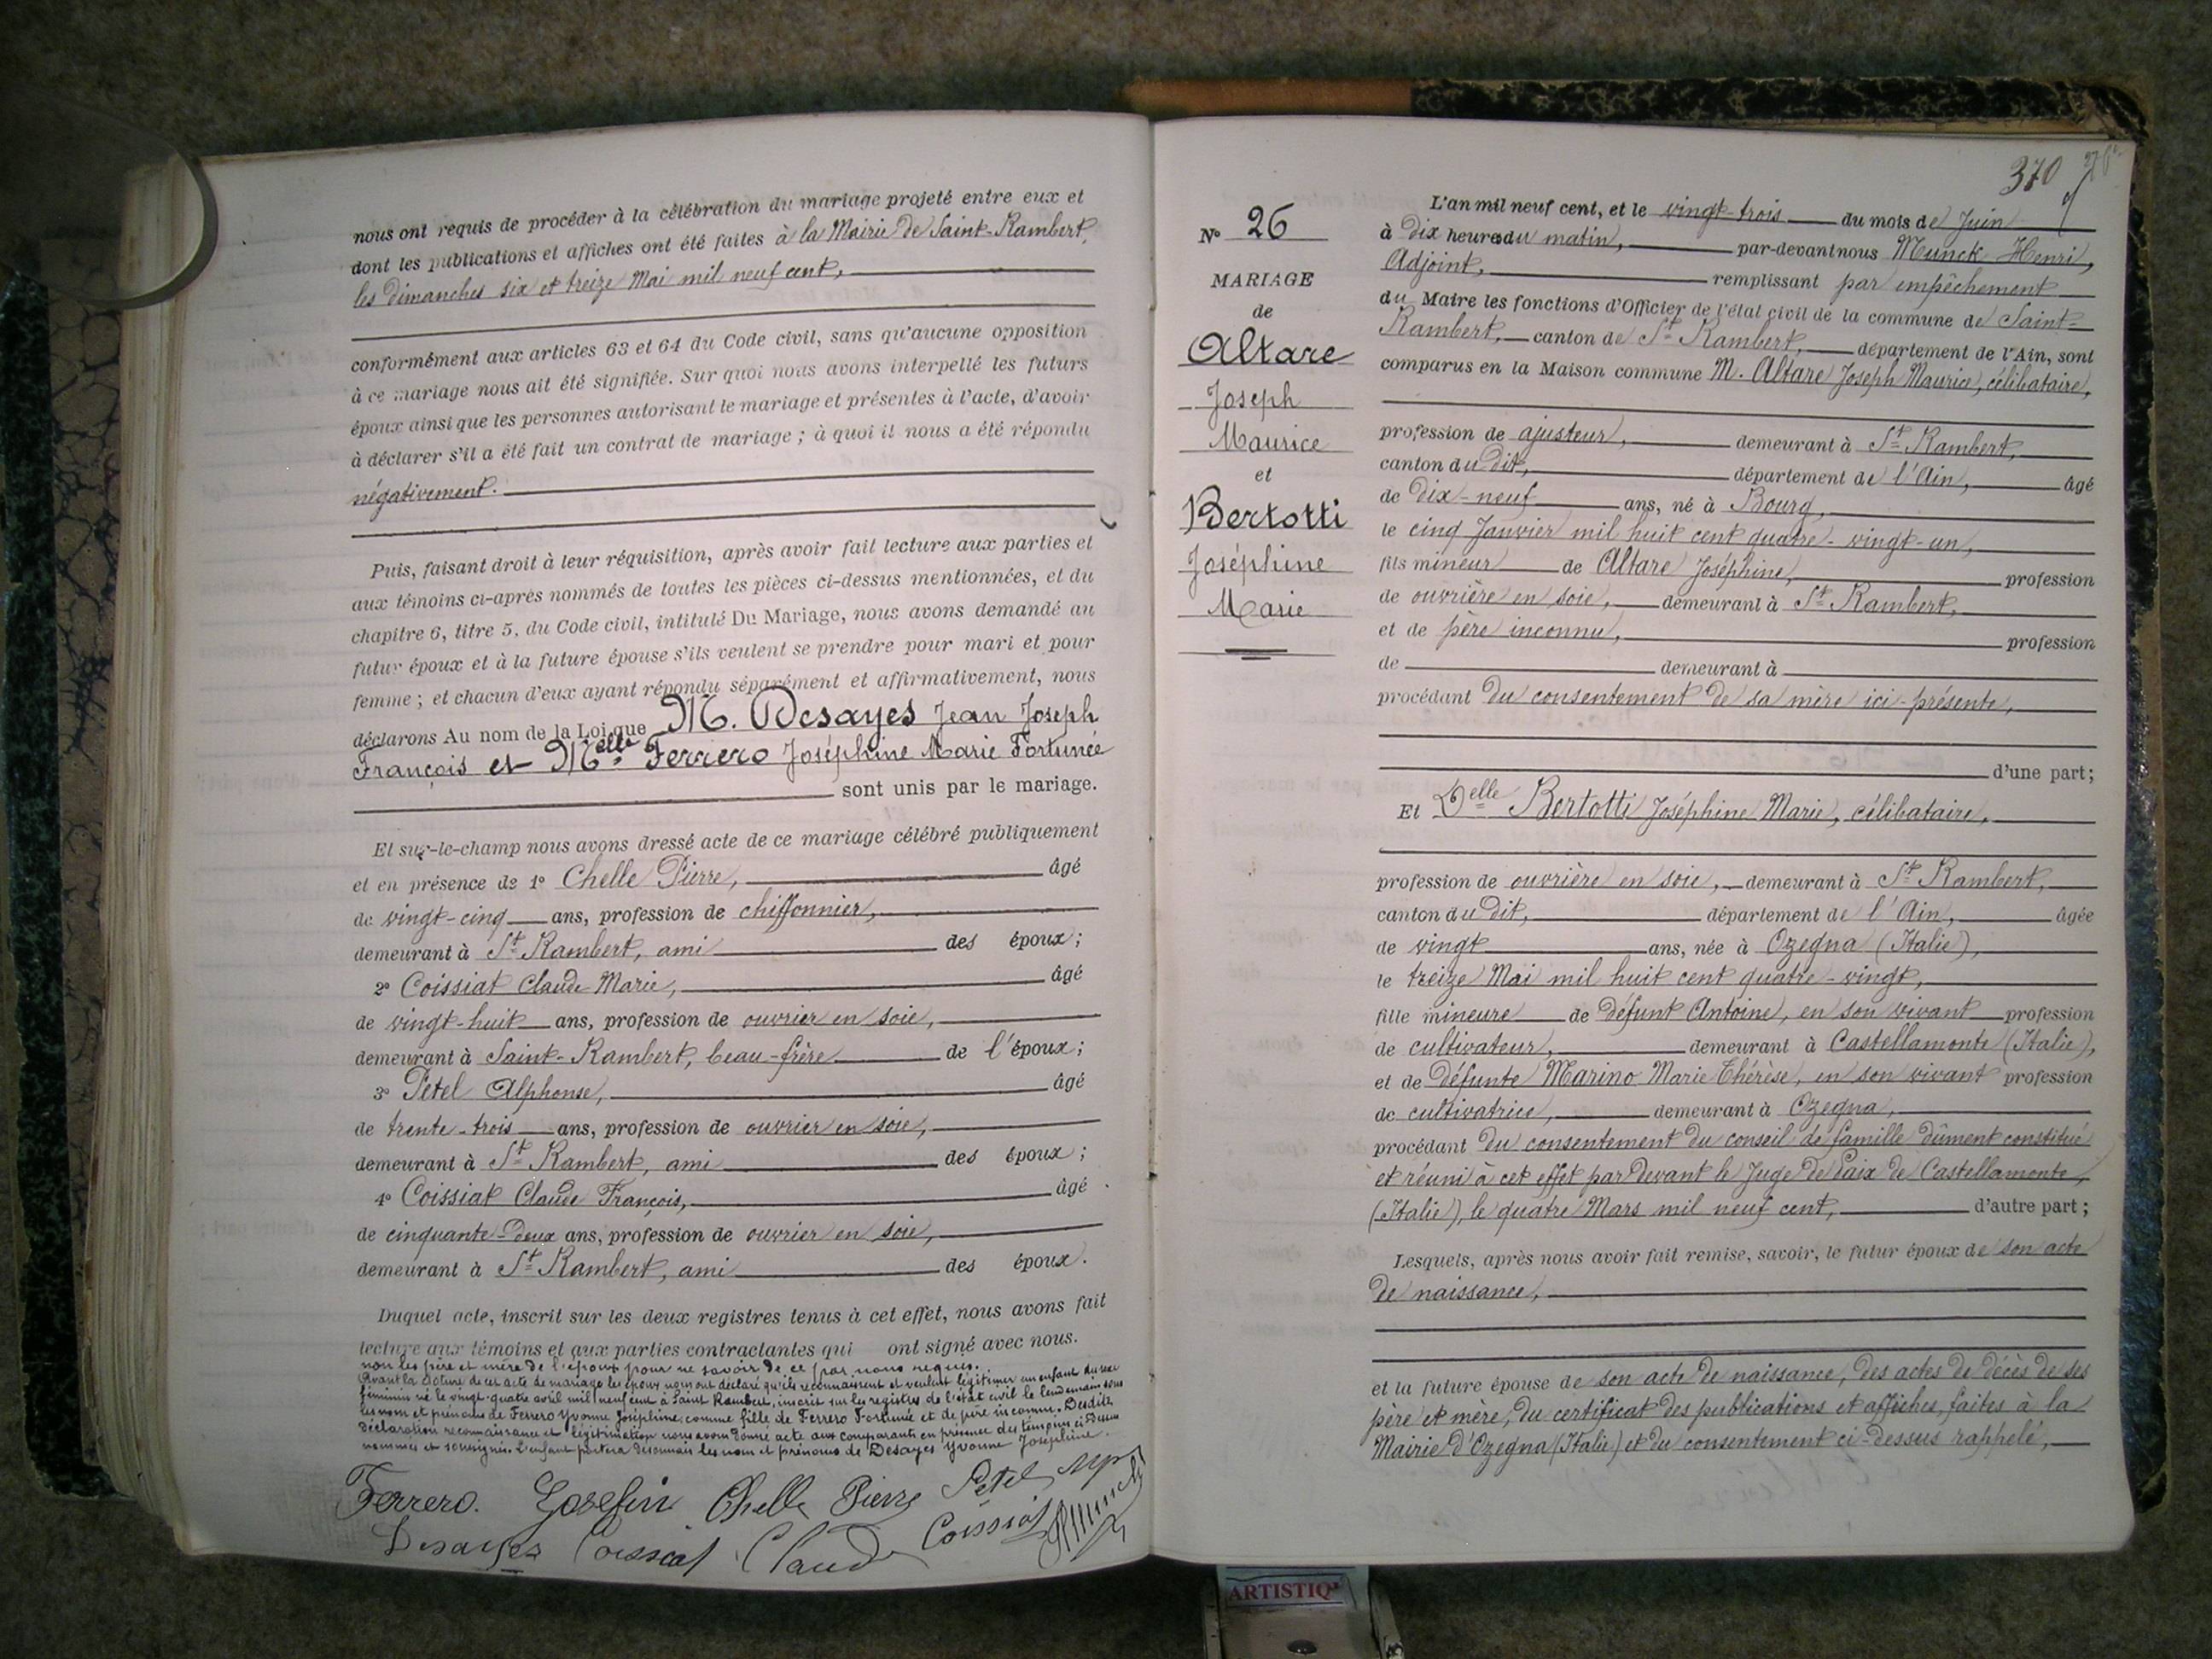 nous ont requis de procéder à la célébration du mariage projeté entre eux et
dont les publications et affiches ont été faites à la Mairie de Saint-Rambert,
les dimanches six et treize Mai mil neuf cent,
conformément aux articles 63 et 64 du Code civil, sans qu'aucune opposition
à ce mariage nous ait été signifiée. Sur quoi nous avons interpellé les futurs
époux ainsi que les personnes autorisant le mariage et présentes à l'acte, d'avoir
à déclarer s'il a été fait un contrat de mariage ; à quoi il nous a été répondu
négativement.
Puis, faisant droit à leur réquisition, après avoir fait lecture aux parties et
aux témoins ci-après nommés de toutes les pièces ci-dessus mentionnées, et du
chapitre 6, titre 5, du Code civil, intitulé Du Mariage, nous avons demandé au
futur époux et à la future épouse s'ils veulent se prendre pour mari et pour
femme ; et chacun d'eux ayant répondu séparément et affirmativement, nous
déclarons Au nom de la Loi que M. Desayes Jean Joseph
François et Melle Ferrero Joséphine Marie Fortunée
sont unis par le mariage.
Et sur-le-champ nous avons dressé acte de ce mariage célébré publiquement
et en présence de 1° Chelle Pierre, âgé
de vingt-cinq ans, profession de chiffonnier,
demeurant à St Rambert, ami des époux ;
2° Coissiat Claude Marie, âgé
de vingt-huit ans, profession de ouvrier en soie,
demeurant à Saint-Rambert, beau-frère de l'époux ;
3° Petel Alphonse, âgé
de trente-trois ans, profession de ouvrier en soie,
demeurant à St Rambert, ami des époux ;
4° Coissiat Claude François, âgé
de cinquante-deux ans, profession de ouvrier en soie,
demeurant à St Rambert, ami des époux.
Duquel acte, inscrit sur les deux registres tenus à cet effet, nous avons fait
lecture aux témoins et aux parties contractantes qui ont signé avec nous.
non les père et mère de l'époux pour ne savoir de ce par nous requis.
Avant la clôture de cet acte de mariage les époux nous ont déclaré qu'ils reconnaissent et veulent légitimer un enfant du sexe
féminin né le vingt-quatre avril mil neuf cent à Saint Rambert, inscrit sur les registres de l'état civil le lendemain sous
les nom et prénoms de Ferrero Yvonne Joséphine, comme fille de Ferrero Fortunée et de père inconnu. Desdites
déclaration reconnaissance et légitimation nous avons donné acte aux comparants en présence des témoins ci-dessus
nommés et soussignés. L'enfant portera désormais les nom et prénoms de Desayes Yvonne Joséphine.
Ferrero. Josefin Chelle Pierre Petel
Desayes Coissiat Claude Coissiat HMunck
370
N° 26
MARIAGE
de
Altare
Joseph
Maurice
et
Bertotti
Joséphine
Marie
L'an mil neuf cent, et le vingt-trois du mois de Juin
à dix heures du matin, par-devant nous Munck Henri,
Adjoint, remplissant par empêchement
du Maire les fonctions d'Officier de l'état civil de la commune de Saint-
Rambert, canton de St Rambert, département de l'Ain, sont
comparus en la Maison commune M. Altare Joseph Maurice, célibataire,
profession de ajusteur, demeurant à St Rambert,
canton du dit, département de l'Ain, âgé
de dix-neuf ans, né à Bourg,
le cinq Janvier mil huit cent quatre-vingt-un,
fils mineur de Altare Joséphine, profession
de ouvrière en soie, demeurant à St Rambert,
et de père inconnu, profession
de demeurant à
procédant du consentement de sa mère ici-présente,
d'une part ;
Et Delle Bertotti Joséphine Marie, célibataire,
profession de ouvrière en soie, demeurant à St Rambert,
canton du dit, département de l'Ain, âgée
de vingt ans, née à Ozegna (Italie),
le treize Mai mil huit cent quatre-vingt,
fille mineure de défunt Antoine, en son vivant profession
de cultivateur, demeurant à Castellamonte (Italie),
et de défunte Marino Marie Thérèse, en son vivant profession
de cultivatrice, demeurant à Ozegna,
procédant du consentement du conseil de famille dûment constitué
et réuni à cet effet par devant le Juge de Paix de Castellamonte,
(Italie), le quatre Mars mil neuf cent, d'autre part ;
Lesquels, après nous avoir fait remise, savoir, le futur époux de son acte
de naissance,
et la future épouse de son acte de naissance, des actes de décès de ses
père et mère, du certificat des publications et affiches, faites à la
Mairie d'Ozegna (Italie) et du consentement ci-dessus rappelé,
ARTISTIQ